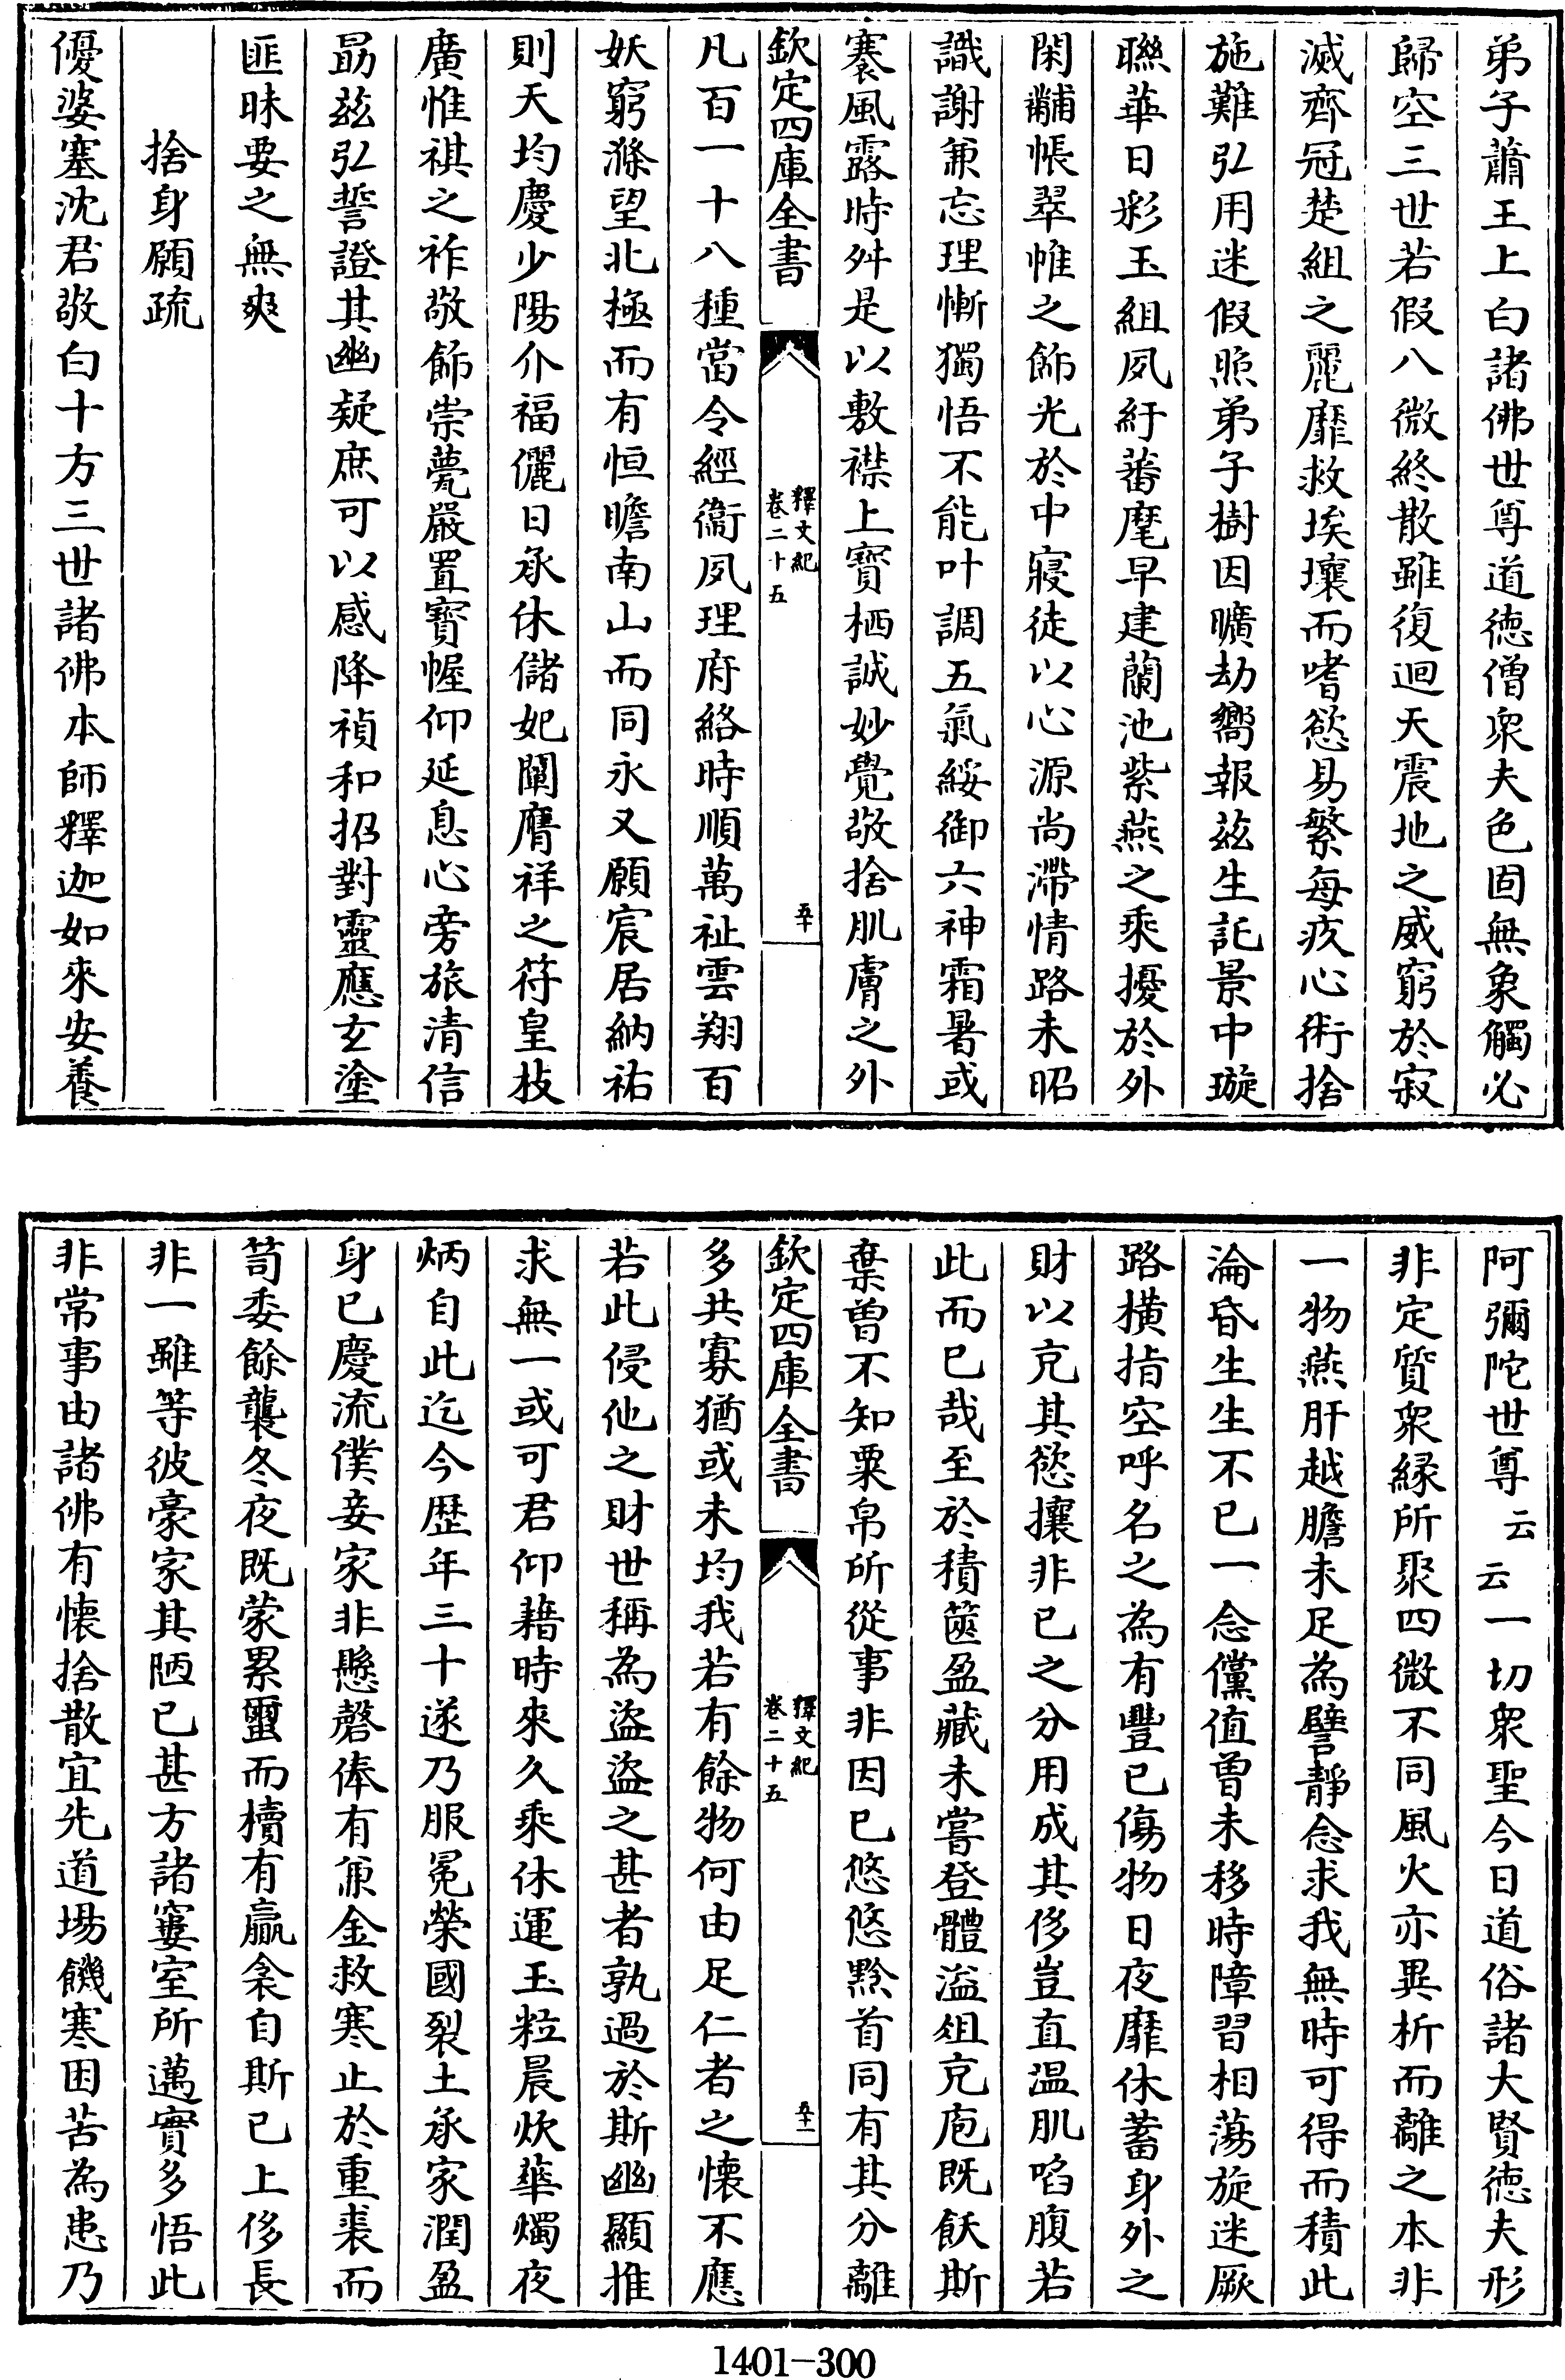 弟子蕭王上白諸佛世尊道德僧衆夫色固無象觸必
歸空三世若假八微終散雖復迴天震地之威窮於寂
滅齊冠楚組之麗靡救埃壤而嗜慾易繁每疚心術捨
施難弘用迷假照弟子樹因曠劫嚮報茲生託景中璇
聯華日彩玉組夙紆蕃麾早建蘭池紫燕之乘擾於外
閑黼帳翠帷之飾光於中寢徒以心源尚滯情路未昭
識謝兼忘理慚獨悟不能叶調五氣綏御六神霜暑或
褰風露時舛是以敷襟上寶栖誠妙覺敬捨肌膚之外
欽定四庫全書
釋文紀
卷二十五
五十
凡百一十八種當令經衞夙理府絡時順萬祉雲翔百
妖窮滌望北極而有恒瞻南山而同永又願宸居納祐
則天均慶少陽介福儷日承休儲妃闡膺祥之符皇枝
廣惟祺之祚敬飾崇甍嚴置寶幄仰延息心旁旅清信
勗茲弘誓證其幽疑庶可以感降禎和招對靈應玄塗
匪昧要之無爽
捨身願疏
優婆塞沈君敬白十方三世諸佛本師釋迦如來安養
阿彌陀世尊云云一切衆聖今日道俗諸大賢德夫形
非定質衆緣所聚四微不同風火亦異析而離之本非
一物燕肝越膽未足為譬靜念求我無時可得而積此
淪昏生生不已一念儻值曽未移時障習相蕩旋迷厥
路橫指空呼名之為有豐已傷物日夜靡休蓄身外之
財以充其慾攘非已之分用成其侈豈直温肌啗腹若
此而已哉至於積篋盈藏未嘗登體溢俎充庖既飫斯
棄曽不知粟帛所從事非因已悠悠黔首同有其分離
欽定四庫全書
釋文紀
卷二十五
五十一
多共寡猶或未均我若有餘物何由足仁者之懷不應
若此侵他之財世稱為盜盜之甚者孰過於斯幽顯推
求無一或可君仰藉時來久乘休運玉粒晨炊華燭夜
炳自此迄今歷年三十遂乃服冕榮國裂土承家潤盈
身已慶流僕妾家非懸磬俸有兼金救寒止於重裘而
笥委餘襲冬夜既蒙累䘥而櫝有羸衾自斯已上侈長
非一雖等彼豪家其陋已甚方諸窶室所邁實多悟此
非常事由諸佛有懷捨散宜先道場饑寒困苦為患乃
1401-300